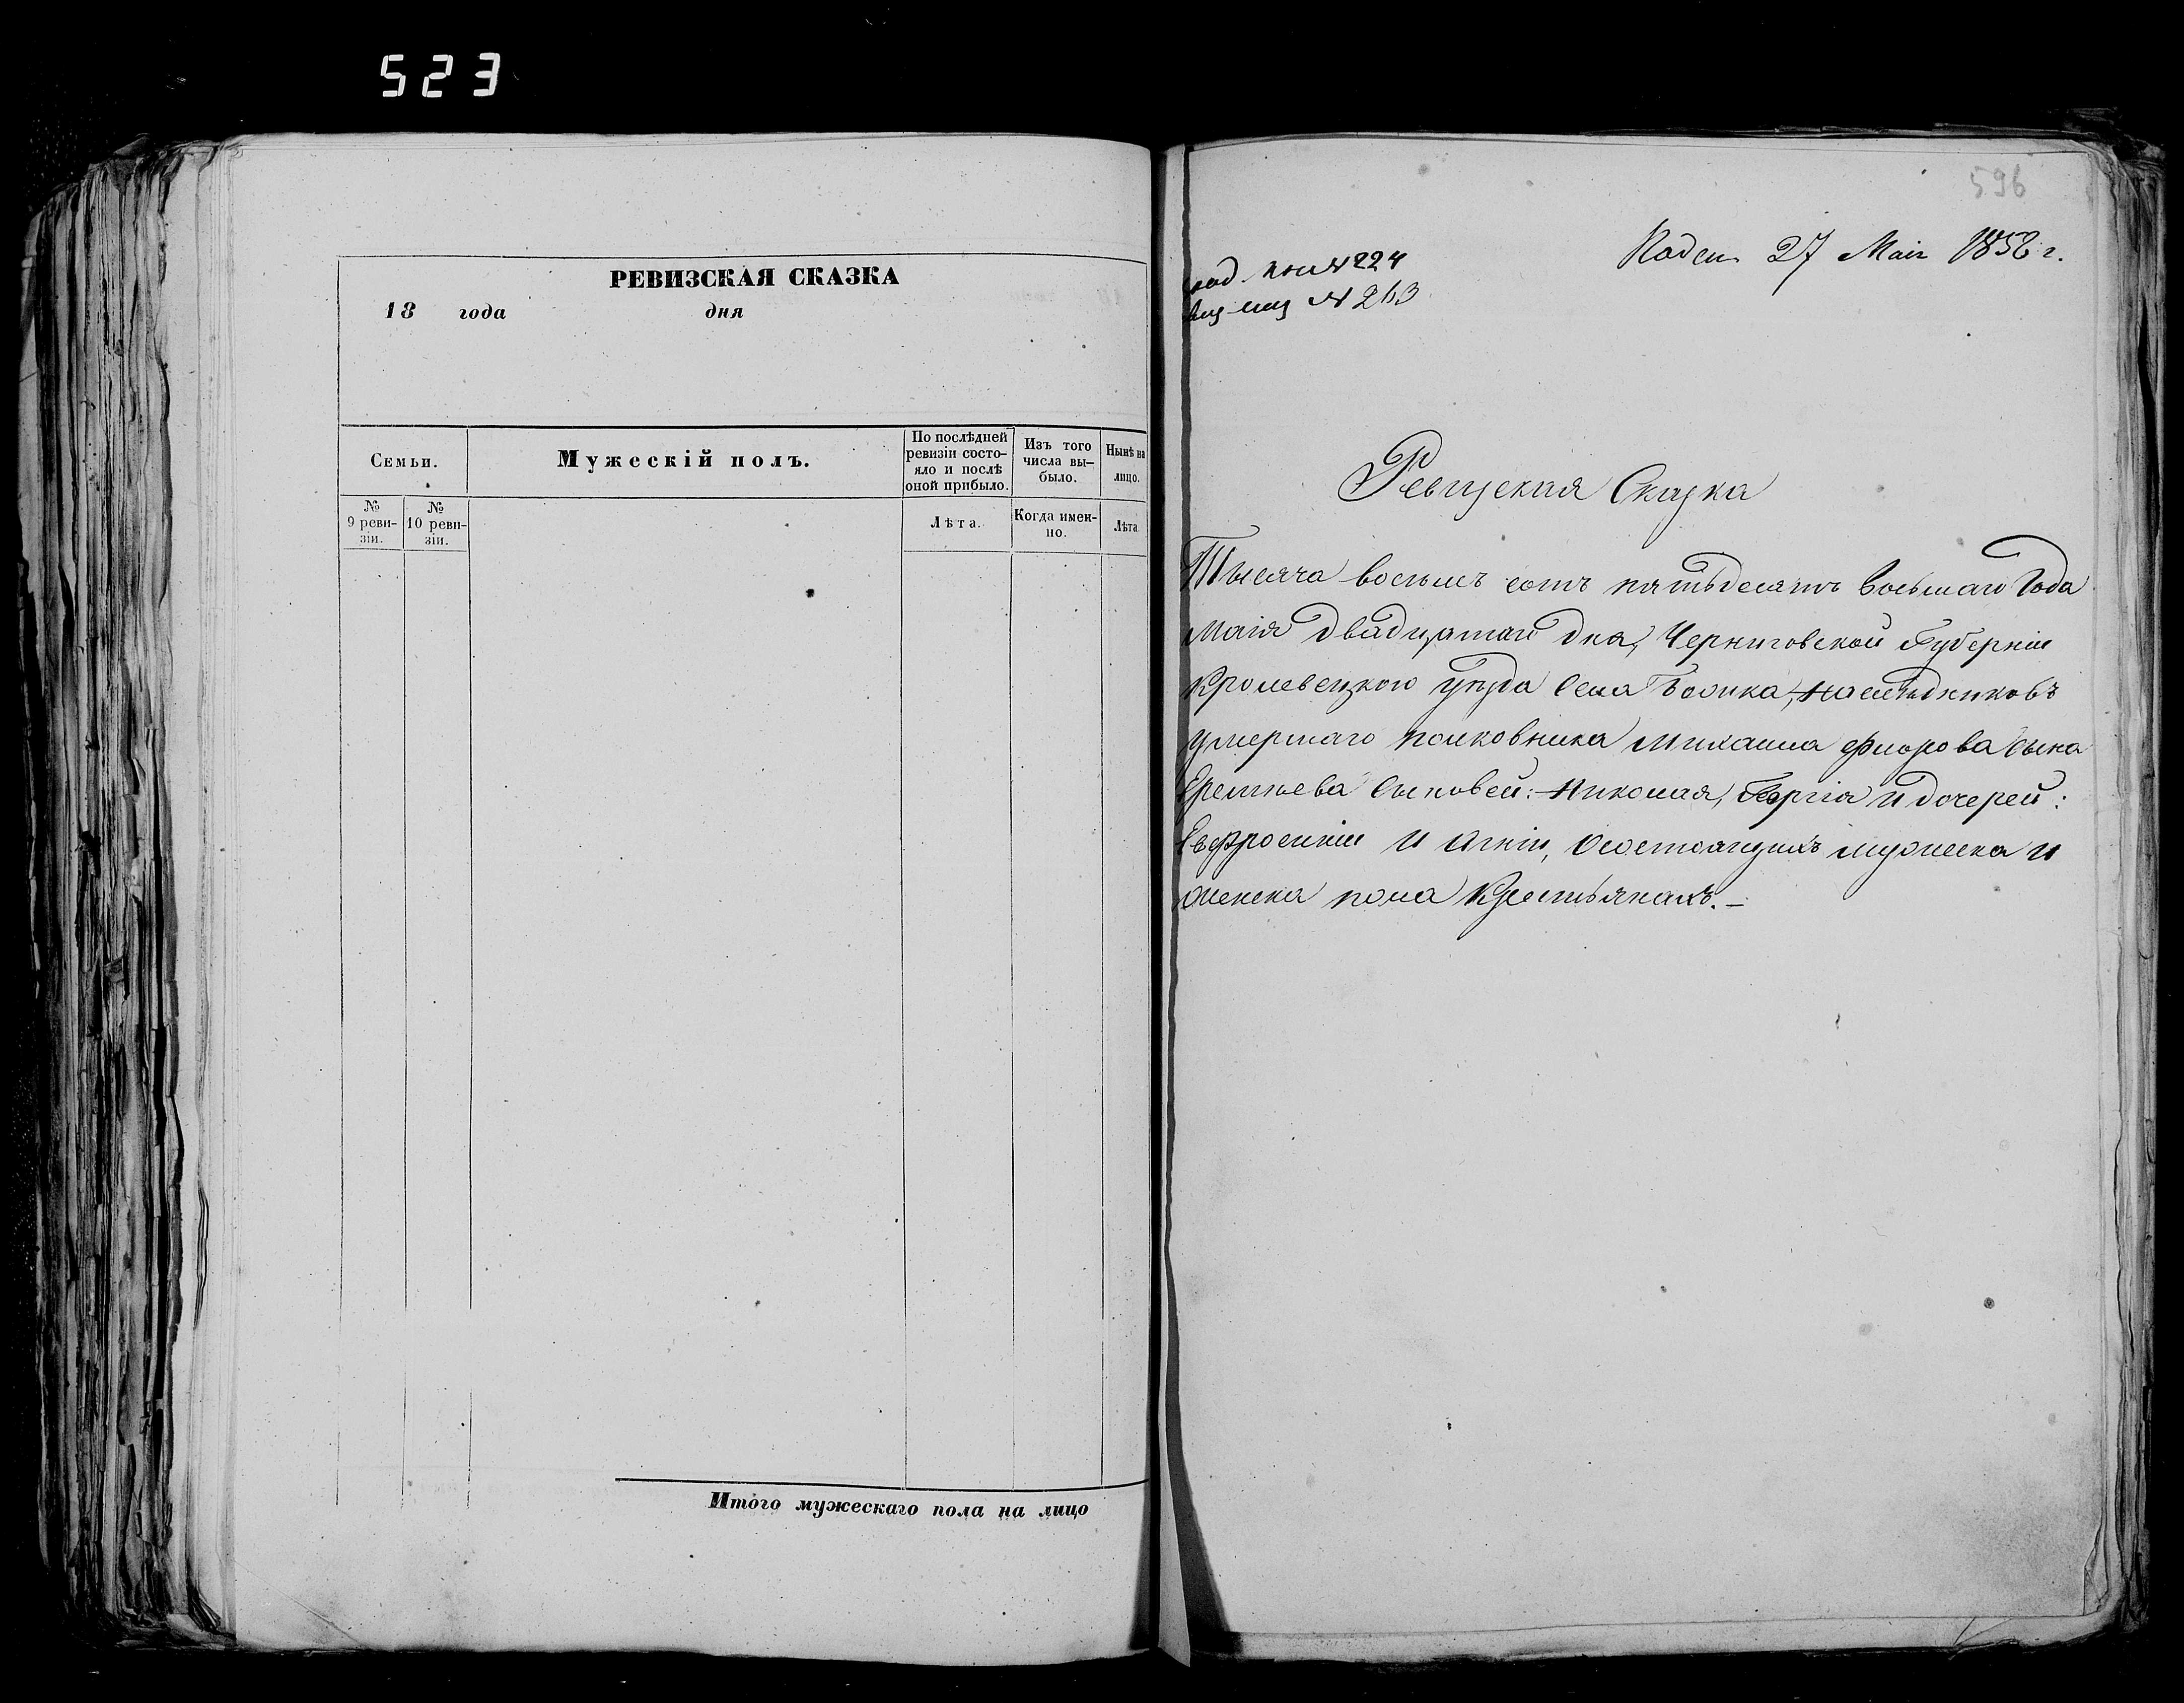 523
РЕВИЗСКАЯ СКАЗКА
18 года дня
Семьи.
Мужескій полъ.
По послѣдней ревизіи состо-
яло и послѣ
оной прибыло.
Изъ того
числа вы-
было.
Нынѣ на
лицо.
№
9 реви-
зіи.
№
10 реви-
зіи.
Лѣта.
Когда имен-
но.
Лѣта
Итого мужескаго пола на лицо
596
27 Маія 1858 г.
№ 224
№ 263
Ревизская Сказка
Тысяча восемь сотъ пятьдесятъ восьмаго Года
Маія двадцатаго дня, Черниговской Губерніи
Кролевецкого уѣзда Села наслѣдниковъ
умершаго полковника Михаила Флорова сына
Еремѣева сыновей: Николая, Георгія и дочерей:
Евфросиніи и Агніи, О состоящихъ мужеска и
женска пола Крестьянахъ.-